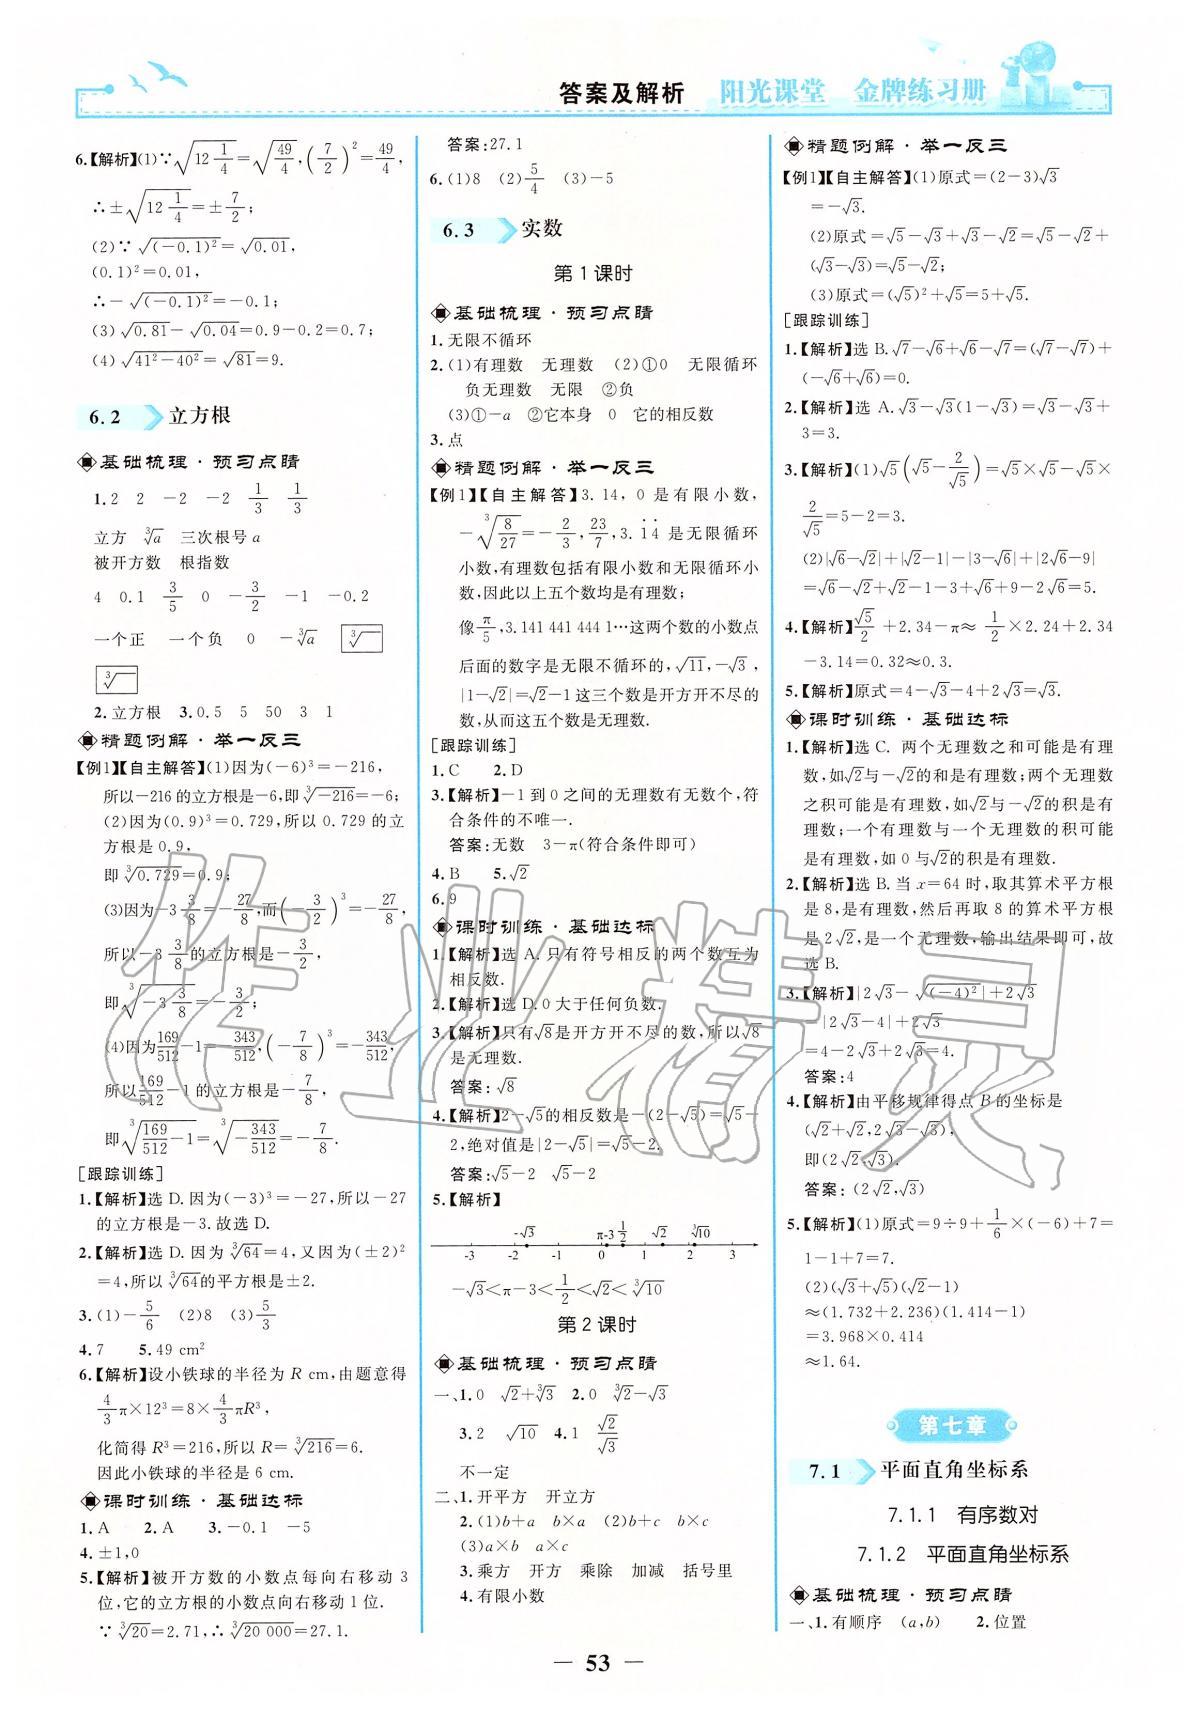 答案及解析 阳光课堂 金牌练习册
6.【解析】(1)∵√(12 1/4)=√(49/4),(7/2)²=49/4,
∴±√(12 1/4)=±7/2;
(2)∵√((-0.1)²)=√0.01,
(0.1)²=0.01,
∴-√((-0.1)²)=-0.1;
(3)√0.81-√0.04=0.9-0.2=0.7;
(4)√(41²-40²)=√81=9.
6.2 立方根
基础梳理·预习点睛
1.2 2 -2 -2 1/3 1/3
立方 ∛a 三次根号a
被开方数 根指数
4 0.1 3/5 0 -3/2 -1 -0.2
一个正 一个负 0 -∛a ∛
∛
2.立方根 3.0.5 5 50 3 1
精题例解·举一反三
【例1】【自主解答】(1)因为(-6)³=-216,
所以-216的立方根是-6,即∛(-216)=-6;
(2)因为(0.9)³=0.729,所以0.729的立
方根是0.9,
即∛0.729=0.9;
(3)因为-3 3/8=-27/8,而(-3/2)³=-27/8,
所以-3 3/8的立方根是-3/2,
即∛(-3 3/8)=-3/2;
(4)因为169/512-1=-343/512,(-7/8)³=-343/512,
所以169/512-1的立方根是-7/8,
即∛(169/512-1)=∛(-343/512)=-7/8.
[跟踪训练]
1.【解析】选D.因为(-3)³=-27,所以-27
的立方根是-3.故选D.
2.【解析】选D.因为∛64=4,又因为(±2)²
=4,所以∛64的平方根是±2.
3.(1)-5/6 (2)8 (3)5/3
4.7 5.49 cm²
6.【解析】设小铁球的半径为R cm,由题意得
4/3π×12³=8×4/3πR³,
化简得R³=216,所以R=∛216=6.
因此小铁球的半径是6 cm.
课时训练·基础达标
1.A 2.A 3.-0.1 -5
4.±1,0
5.【解析】被开方数的小数点每向右移动3
位,它的立方根的小数点向右移动1位.
∵∛20=2.71,∴∛20 000=27.1.
答案:27.1
6.(1)8 (2)5/4 (3)-5
6.3 实数
第1课时
基础梳理·预习点睛
1.无限不循环
2.(1)有理数 无理数 (2)①0 无限循环
负无理数 无限 ②负
(3)①-a ②它本身 0 它的相反数
3.点
精题例解·举一反三
【例1】【自主解答】3.14,0是有限小数,
-∛(8/27)=-2/3,23/7,3.1̇4̇是无限循环
小数,有理数包括有限小数和无限循环小
数,因此以上五个数均是有理数;
像π/5,3.141 441 444 1…这两个数的小数点
后面的数字是无限不循环的,√11,-√3,
|1-√2|=√2-1这三个数是开方开不尽的
数,从而这五个数是无理数.
[跟踪训练]
1.C 2.D
3.【解析】-1到0之间的无理数有无数个,符
合条件的不唯一.
答案:无数 3-π(符合条件即可)
4.B 5.√2
6.9
课时训练·基础达标
1.【解析】选A.只有符号相反的两个数互为
相反数.
2.【解析】选D.0大于任何负数.
3.【解析】只有√8是开方开不尽的数,所以√8
是无理数.
答案:√8
4.【解析】2-√5的相反数是-(2-√5)=√5-
2,绝对值是|2-√5|=√5-2.
答案:√5-2 √5-2
5.【解析】
-√3 π-3 1/2 √2 ∛10
-3 -2 -1 0 1 2 3
-√3<π-3<1/2<√2<∛10
第2课时
基础梳理·预习点睛
一、1.0 √2+∛3 2.0 ∛2-√3
3.2 √10 4.1 √2/√3
不一定
二、1.开平方 开立方
2.(1)b+a b×a (2)b+c b×c
(3)a×b a×c
3.乘方 开方 乘除 加减 括号里
4.有限小数
精题例解·举一反三
【例1】【自主解答】(1)原式=(2-3)√3
=-√3.
(2)原式=√5-√3+√3-√2=√5-√2+
(√3-√3)=√5-√2;
(3)原式=(√5)²+√5=5+√5.
[跟踪训练]
1.【解析】选B.√7-√6+√6-√7=(√7-√7)+
(-√6+√6)=0.
2.【解析】选A.√3-√3(1-√3)=√3-√3+
3=3.
3.【解析】(1)√5(√5-2/√5)=√5×√5-√5×
2/√5=5-2=3.
(2)|√6-√2|+|√2-1|-|3-√6|+|2√6-9|
=√6-√2+√2-1-3+√6+9-2√6=5.
4.【解析】√5/2+2.34-π≈1/2×2.24+2.34
-3.14=0.32≈0.3.
5.【解析】原式=4-√3-4+2√3=√3.
课时训练·基础达标
1.【解析】选C. 两个无理数之和可能是有理
数,如√2与-√2的和是有理数;两个无理数
之积可能是有理数,如√2与-√2的积是有
理数;一个有理数与一个无理数的积可能
是有理数,如0与√2的积是有理数.
2.【解析】选B.当x=64时,取其算术平方根
是8,是有理数,然后再取8的算术平方根
是2√2,是一个无理数,输出结果即可,故
选B.
3.【解析】|2√3-√((-4)²)|+2√3
=|2√3-4|+2√3
=4-2√3+2√3=4.
答案:4
4.【解析】由平移规律得点B的坐标是
(√2+√2,2√3-√3),
即(2√2,√3).
答案:(2√2,√3)
5.【解析】(1)原式=9÷9+1/6×(-6)+7=
1-1+7=7.
(2)(√3+√5)(√2-1)
≈(1.732+2.236)(1.414-1)
=3.968×0.414
≈1.64.
第七章
7.1 平面直角坐标系
7.1.1 有序数对
7.1.2 平面直角坐标系
基础梳理·预习点睛
一、1.有顺序 (a,b) 2.位置
— 53 —
作业精灵